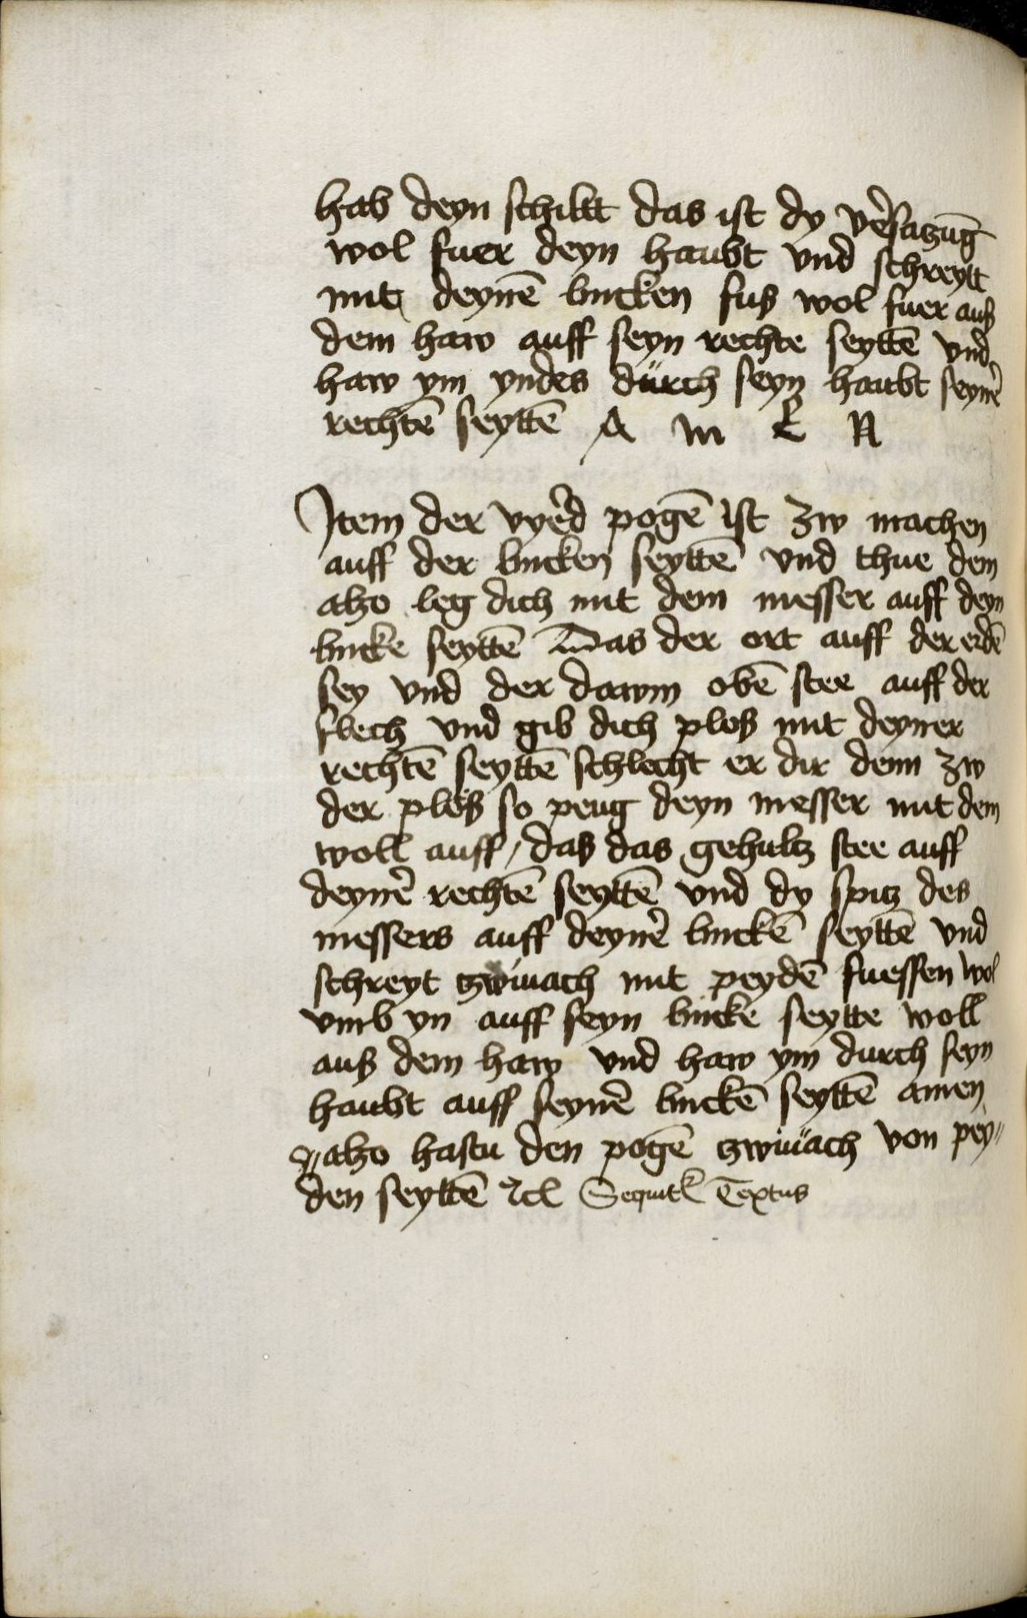 hab deyn schiltt das ist dy v̉satzūg
wol fuer deyn haubt vnd schreytt
mit deynē lincken fus wol fuer auß
dem haw auff seyn rechte seyttē vnd
haw ym yndes dürch seyn haubt seynẻ
rechtē seyttē A m E N
Item der vyẻd pogē ist zw machen
auff der lincken seyttē vnd thue dem
also leg dich mit dem messer auff deyn
lincke seyttē das der ort auff der erdē
sey vnd der dawm obē stee auff der
flech vnd gib dich ploß mit deyner
rechtē seyttē schlecht er dir denn zw
der plöß so peug deyn messer mit dem
woll auff / daß das gehultz stee auff
deynẻ rechtē seyttē vnd dy spitz des
messers auff deynẻ linckē seyttē vnd
schreyt tzwiuach mit peydē fuessen wol
vmb yn auff seyn lincke seytte woll
auß dem haw vnd haw ym durch seyn
haubt auff seynẻ linckē seyttē amen
also hastu den pogē tzwiuach von pey〃
den seyttē ꝛcꝉ Sequitꝛ Textus